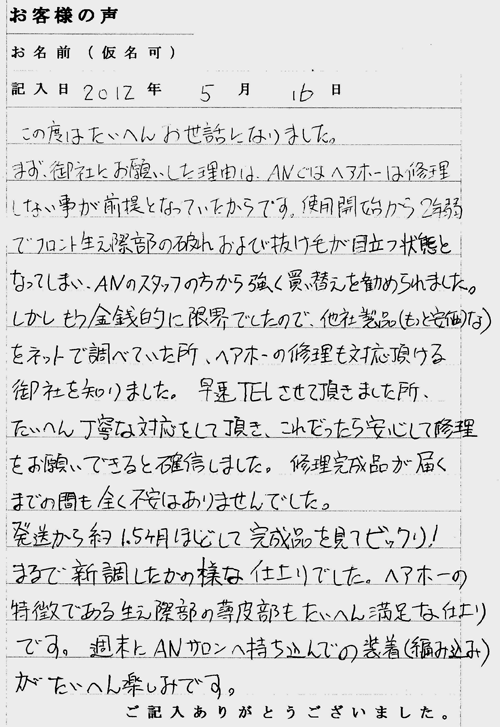 お客様の声
お名前（仮名可）
記入日 2012 年 5 月 16 日
この度はたいへんお世話になりました。
まず、御社にお願いした理由は、ANではヘアホーは修理
しない事が前提となっていたからです。使用開始から2年弱
でフロント生え際部の破れおよび抜け毛が目立つ状態と
なってしまい、ANのスタッフの方から強く買い替えを勧められました。
しかしもう金銭的に限界でしたので、他社製品(もっと安価)な)
をネットで調べていた所、ヘアホーの修理も対応頂ける
御社を知りました。早速TELさせて頂きました所、
たいへん丁寧な対応をして頂き、これだったら安心して修理
をお願いできると確信しました。修理完成品が届く
までの間も全く不安はありませんでした。
発送から約1.5ヶ月ほどして完成品を見てビックリ!
まるで新調したかの様な仕上りでした。ヘアホーの
特徴である生え際部の薄皮部もたいへん満足な仕上り
です。週末にANサロンへ持ち込んでの装着(編み込み)
がたいへん楽しみです。
ご記入ありがとうございました。